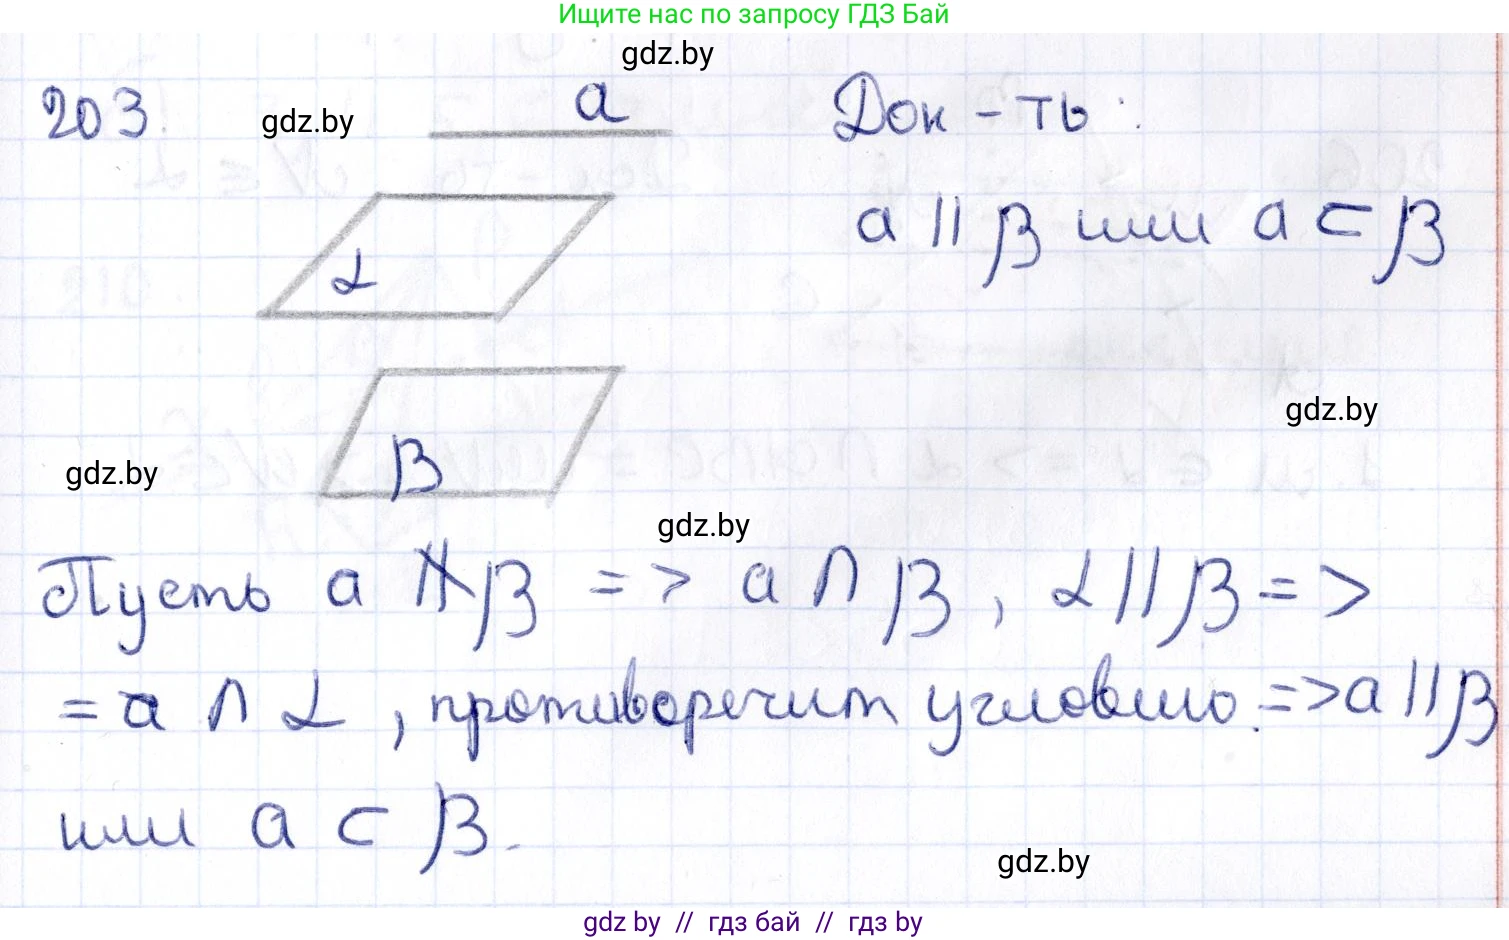 Ищите нас по запросу ГДЗ Бай
gdz.by
203.
gdz.by
a
Док-ть:
α
a || β или a ⊂ β
gdz.by
β
gdz.by
gdz.by
Пусть a ∦ β => a ∩ β, α || β =>
= a ∩ α, противоречит условию. => a || β
или a ⊂ β.
gdz.by
gdz by // гдз бай // гдз by